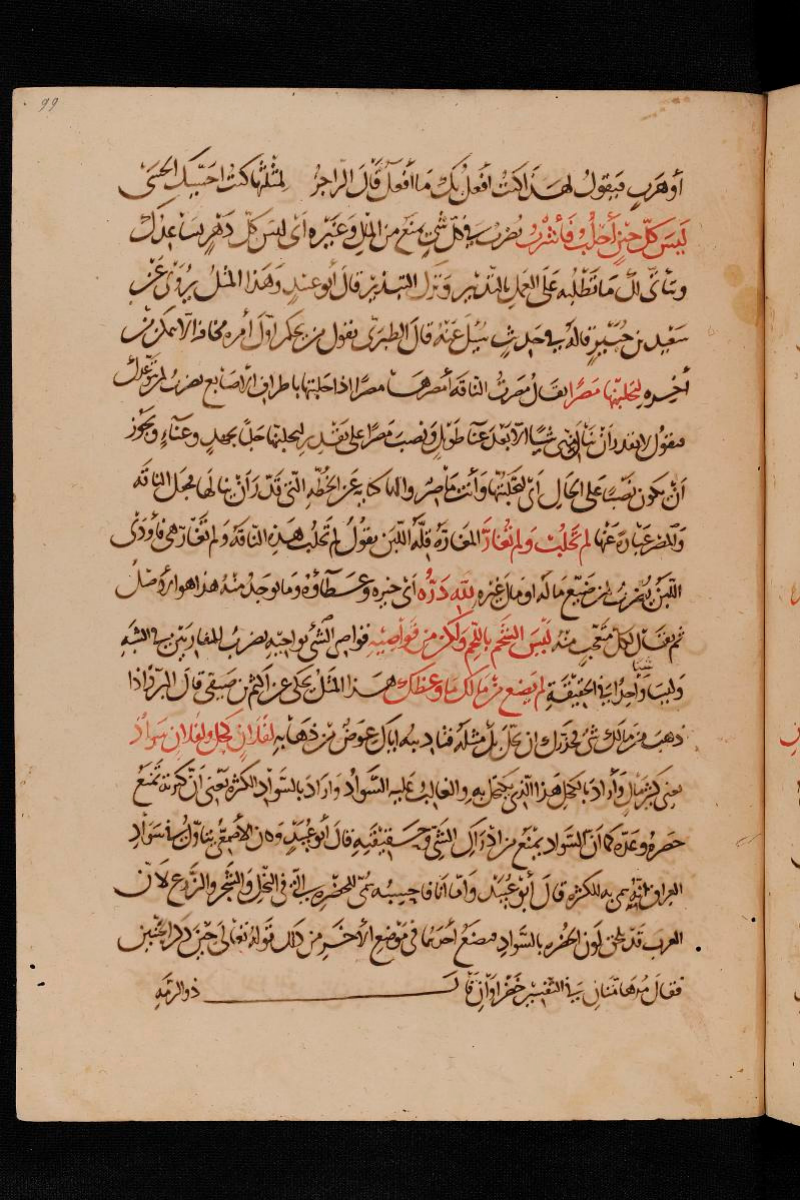 99
أو هرب فيقول لهذا كنت أفعل بك ما أفعل قال الراجز لمثلها كنت احسيك الحسى
ليس كل حين أحلب فأشرب يضرب في كل شي يمنع من المال وغيره أي ليس كل دهر يساعدك
ويتأتى لك ما تطلبه على العمل بالتدبير وترك التبذير قال أبو عبيد وهذا المثل يروى عن
سعيد بن جبير قاله في حديث سئل عنه قال الطبري يقول من يحكم أول أمره مخافة الا يمكن من
أخره ليحلبنها مصرا يقال مصرت الناقة أمصرها مصرا اذا حلبتها باطراف الاصابع يضرب لمن توعدك
فيقول لا يقدر أن ينال مني شيا الا بعد عنا طويل ونصب مصرا على تقدير ليحلبنها حلبا بجهد وعناء ويجوز
أن يكون نصبا على الحال أي لتحلبنها وأنت ماصر والها كناية عن الخطة التي قدر أن ينالها فجعل الناقة
والمصر عبارة عنها لم تحلب ولم تغار المغارة قلة اللبن يقول لم تحلب هذه الناقة ولم تغار هي فأودى
اللبن يضرب لمن ضيع ماله او مال غيره لله دره أي خيره وعطاؤه وما يوجد منه هذا هو الأصل
ثم يقال لكل متعجب منه ليس الشحم باللحم ولكن من قواصيه قواصي الشي نواحيه يضرب للمتقاربين في الشبه
وليسا شيئا واحدا في الحقيقة لم يضع من مالك ما وعظك هذا المثل يحكى عن أكثم بن صيفي قال المبرد اذا
ذهب من مالك شي فحذرك ان يحل بك مثله فتاديبه اياك عوض من ذهابه لفلان كحل ولفلان سواد
يعني كثير مال وأراد بالكحل هذا الذي يكتحل به والغالب عليه السواد وأراد بالسواد الكثرة يعني ان كثرته تمنع
حصره وعده كما ان السواد يمنع من ادراك الشي وحقيقته قال أبو عبيد وكان الأصمعي يتاول في سواد
العراق انه سمي به للكثرة قال أبو عبيد وأما أنا فاحسبه سمي للخضرة التي في النخل والشجر والزرع لان
العرب قد تلحق لون الخضرة بالسواد فتضع أحدهما في موضع الأخر من ذلك قوله تعالى حين ذكر الجنتين
فقال مدهامتان في التفسير خضراوان قال ذو الرمة